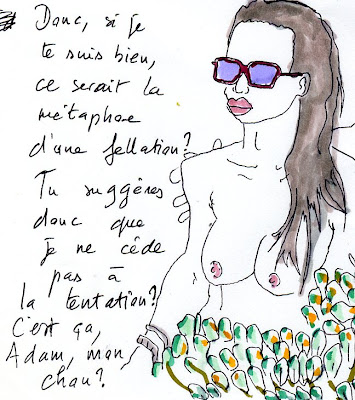 Donc, si je
te suis bien,
ce serait la
métaphore
d'une fellation?
Tu suggères
donc que
je ne cède
pas à
la tentation?
C'est ça,
Adam, mon
chou?